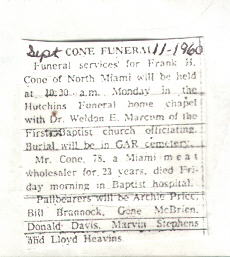 Sept CONE FUNERAL 11-1960
Funeral services for Frank H.
Cone of North Miami will be held
at 10:30 a.m. Monday in the
Hutchins Funeral home chapel
with Dr. Weldon E. Marcum of the
First Baptist church officiating.
Burial will be in GAR cemetery.
Mr. Cone, 78, a Miami meat
wholesaler for 23 years, died Fri-
day morning in Baptist hospital.
Pallbearers will be Archie Price,
Bill Brannock, Gene McBrien,
Donald Davis, Marvin Stephens
and Lloyd Heavins